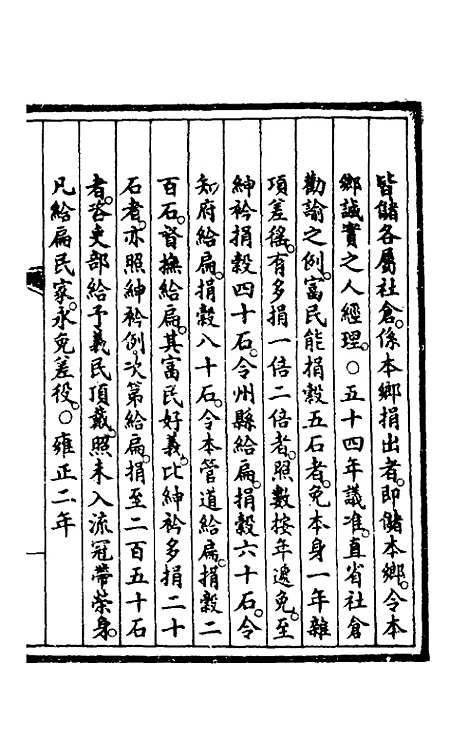 皆儲各屬社倉。係本鄉捐出者。即儲本鄉。令本
鄉誠實之人經理。○五十四年議准。直省社倉
勸諭之例。富民能捐穀五石者。免本身一年雜
項差徭。有多捐一倍二倍者。照數按年遞免。至
紳衿捐穀四十石。令州縣給扁。捐穀六十石。令
知府給扁。捐穀八十石。令本管道給扁。捐穀二
百石。督撫給扁。其富民好義。比紳衿多捐二十
石者。亦照紳衿例。次第給扁。捐至二百五十石
者。咨吏部給予義民頂戴。照未入流冠帶榮身。
凡給扁民家。永免差役。○雍正二年